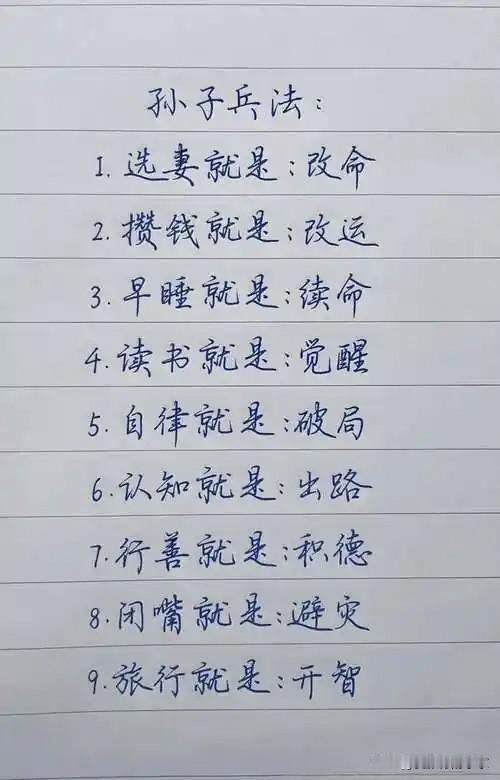 孙子兵法：
1. 选妻就是：改命
2. 攒钱就是：改运
3. 早睡就是：续命
4. 读书就是：觉醒
5. 自律就是：破局
6. 认知就是：出路
7. 行善就是：积德
8. 闭嘴就是：避灾
9. 旅行就是：开智